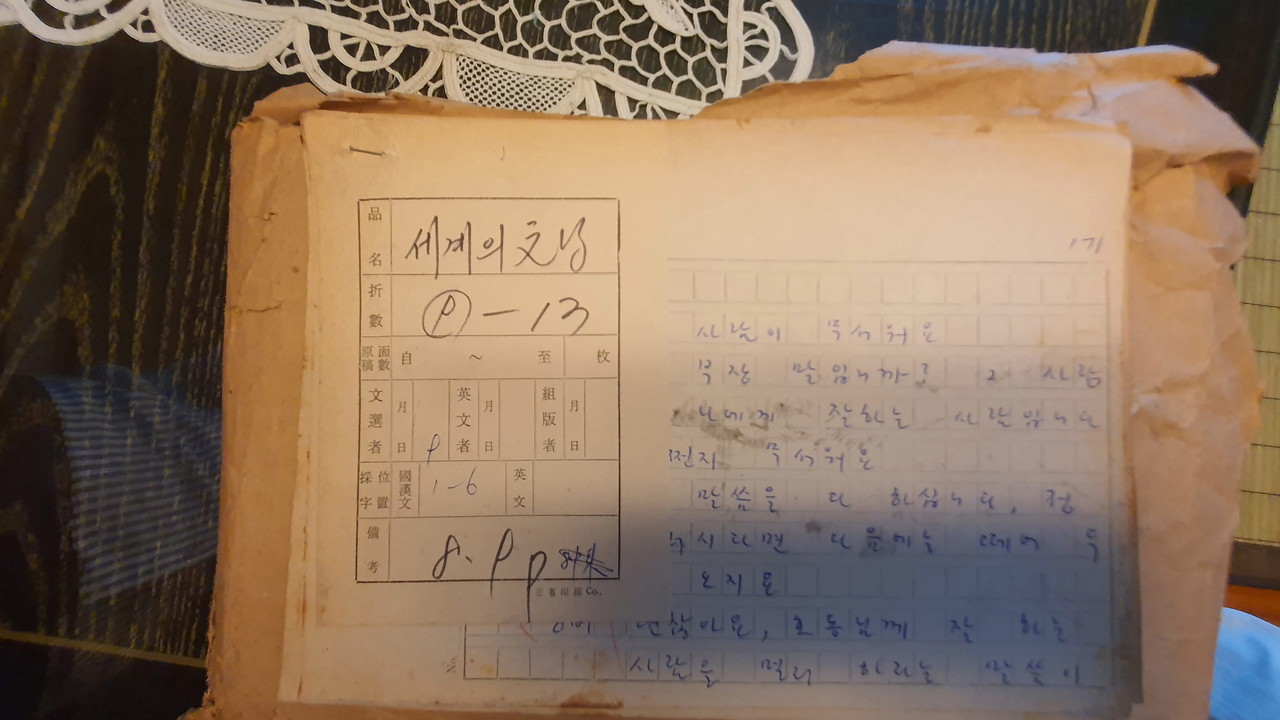 品名 세계의 文學
折數 ⑨-13
原稿面數 自 ~ 至 枚
文選者 月 日 英文者 月 日 組版者 月 日
採字位置 國漢文 1-6 英文
備考 8. 9
三省印刷 Co.
171
사람이 무서워요
부장 말입니까? 그 사람
에게 잘하는 사람입니다
전지 무서워요
말씀을 다 하십니다, 정
시다면 다음에는 떼어 두
오지요
찮아요, 호동님께 잘 하는
사람을 멀리 하라는 말씀이